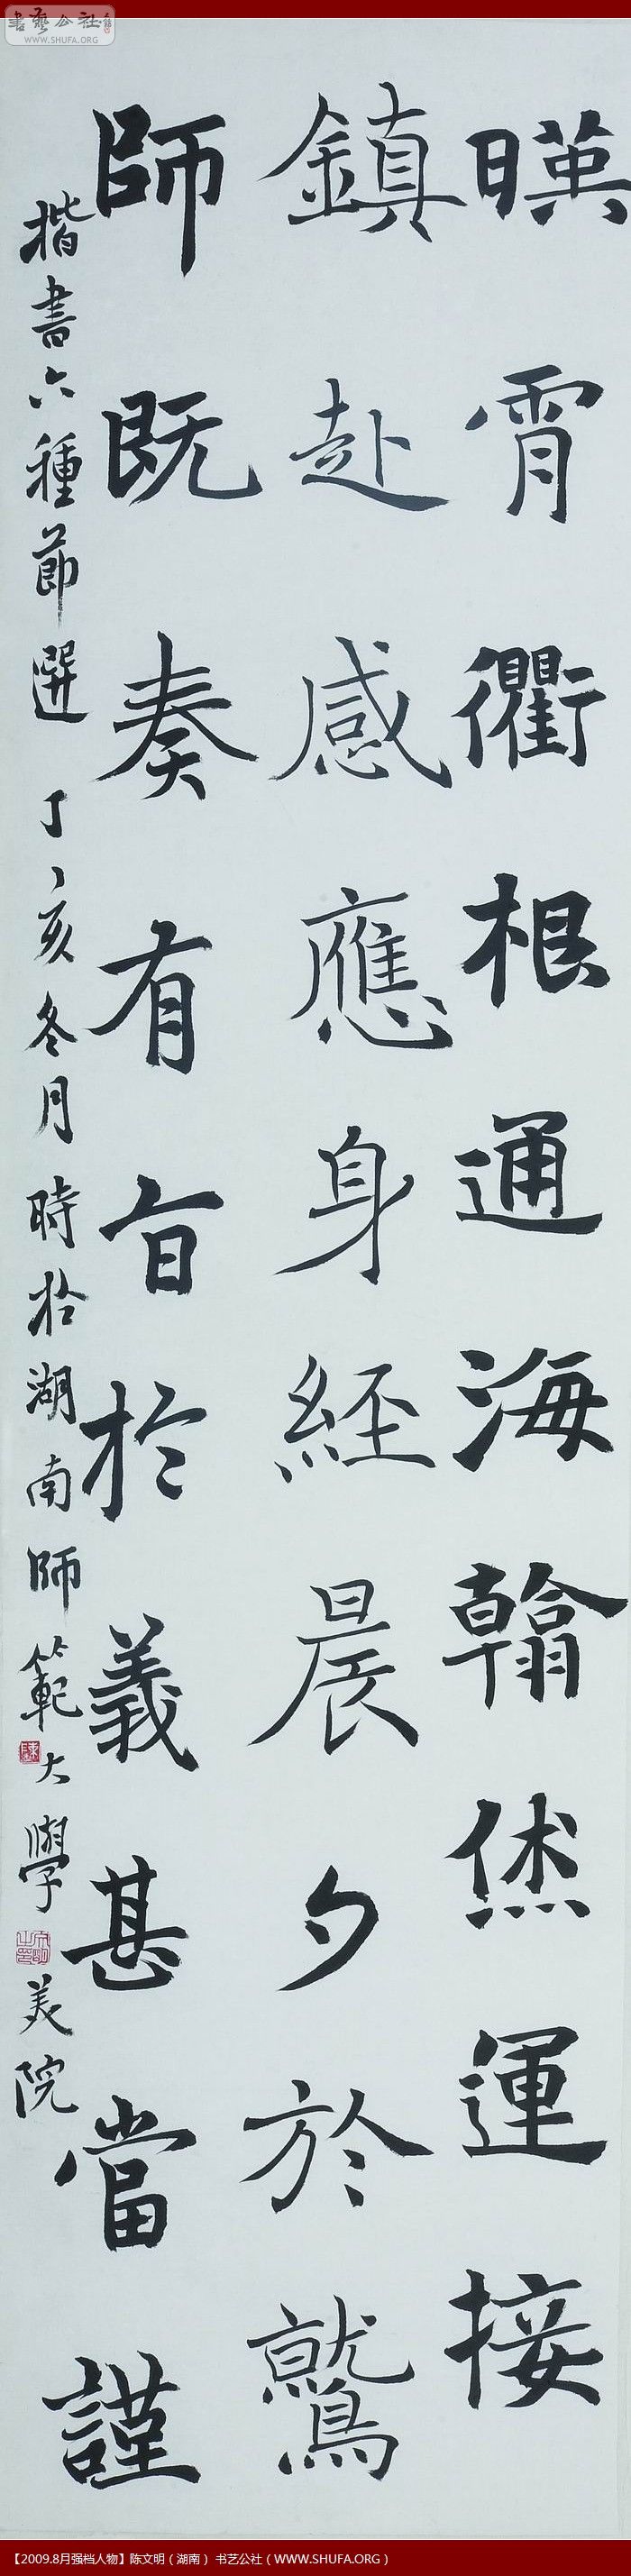 書藝公社
WWW.SHUFA.ORG
暎霄衢根通海翰倐運接
鎮赴感應身經晨夕於鷲
師既奏有旨於義甚當謹
楷書六種節選 丁亥冬月時於湖南師範大學美院
【2009.8月强档人物】陈文明（湖南） 书艺公社（WWW.SHUFA.ORG）